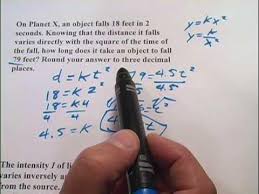 On Planet X, an object falls 18 feet in 2
seconds. Knowing that the distance it falls
varies directly with the square of the time
of the fall, how long does it take an object to fall
79 feet? Round your answer to three decimal
places.
y = Kx²
y = K/x²
d = Kt²
79 = 4.5t²
18 = K2²
18 = K4
4.5 = K
The intensity I of li
varies inversely a
from the source.